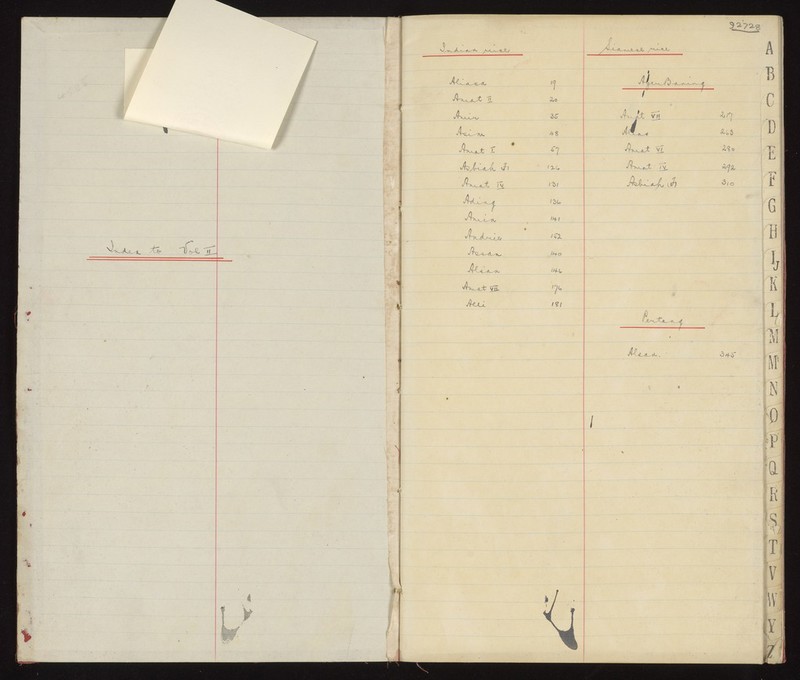 Index to Vol II
92728
Indian rice
Aliasa 19
Amat I 20
Amir 25
Asim 48
Amat V 57
Asbiah VI 126
Amat IV 131
Ading 136
Amin 141
Andria 152
160
Alian 166
Amat VIII 176
Alli 181
Siamese rice
Ayer Baning
Amat VII 217
263
Amat VI 290
Amat IX 292
Asbiah 310
Penteng
345
A
B
C
D
E
F
G
H
I J
K
L
M
Mc
N
O
P
Q
R
S
T
V
W
Y
Z